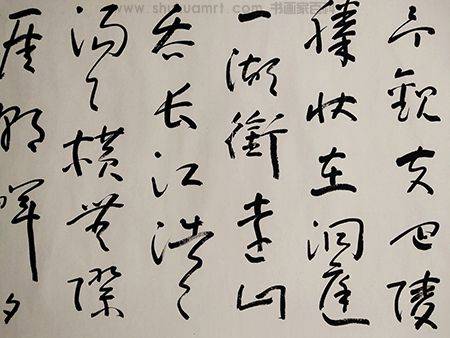 书画家百科
予觀夫巴陵
勝状在洞庭
一湖銜遠山
吞长江浩々
湯々橫無際
涯朝暉夕